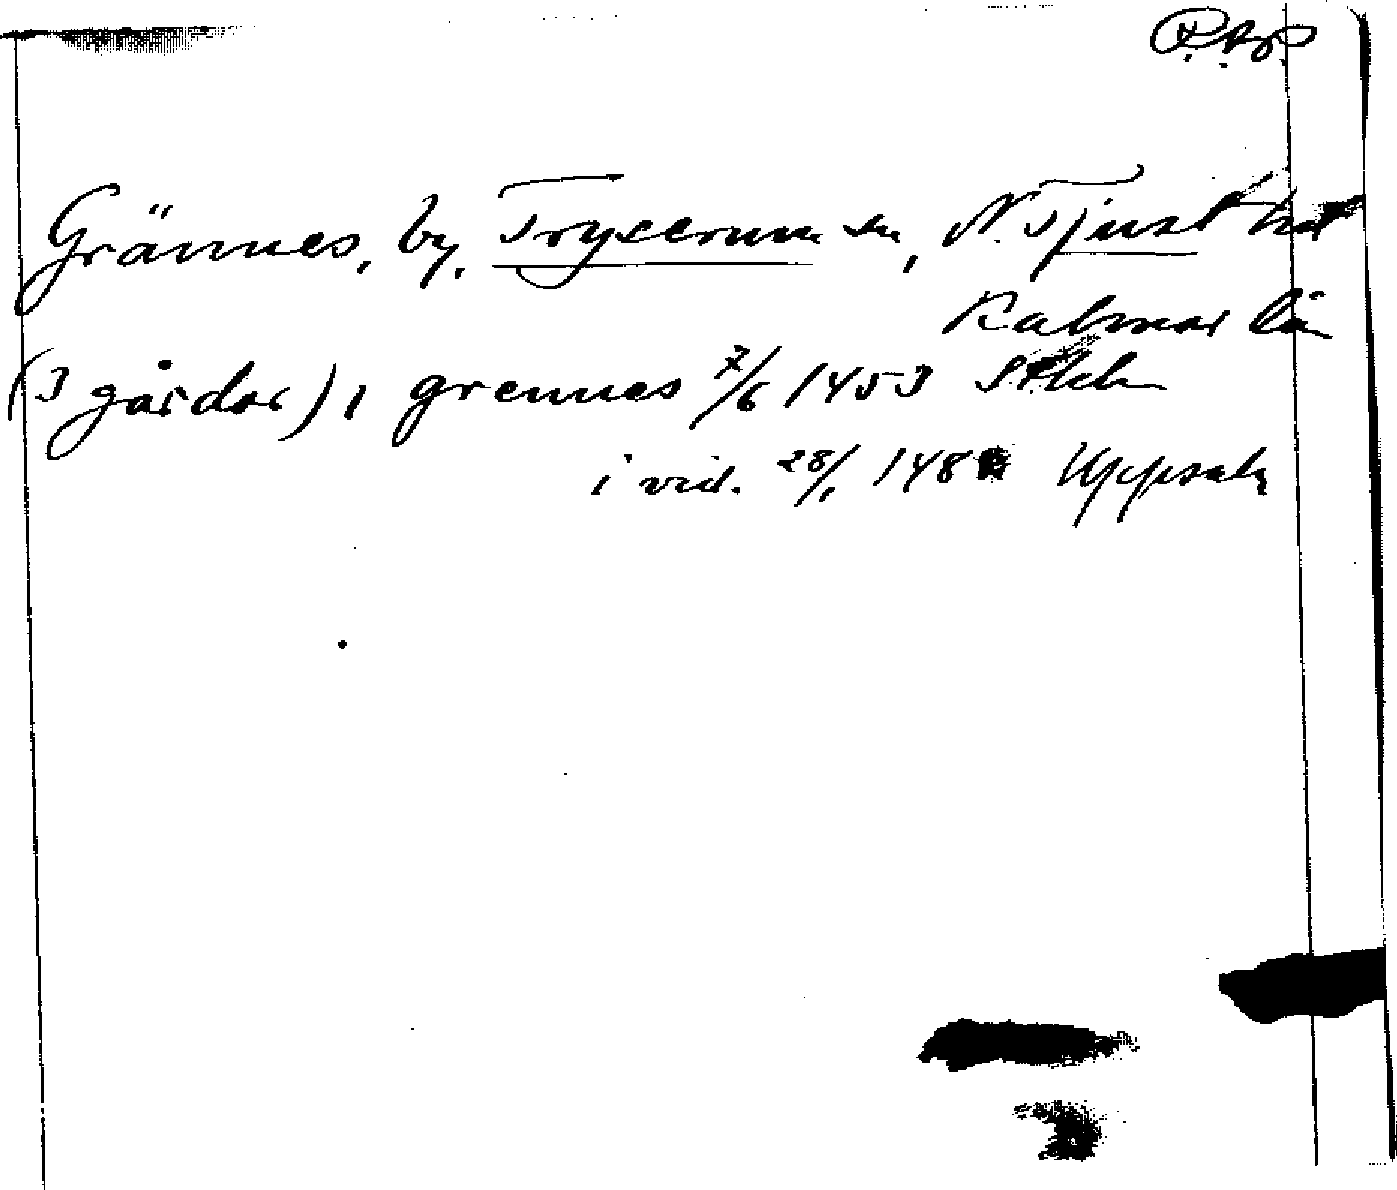 R.Ap.
Grännes, by, Tryserum sn, N. Tjust hd
Kalmar län
(3 gårdar), grennes 7/6 1453 Sthlm
i vid. 28/1 148 Uppsala